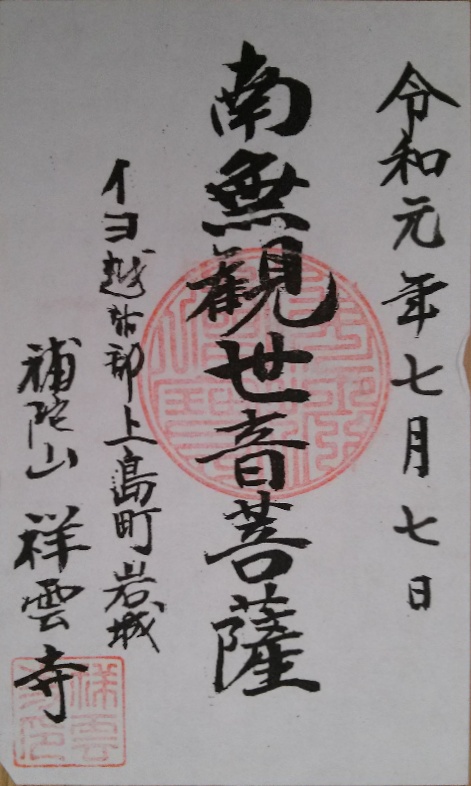 令和元年七月七日
南無観世音菩薩
イヨ越智郡上島町岩城
補陀山 祥雲寺
祥雲寺印